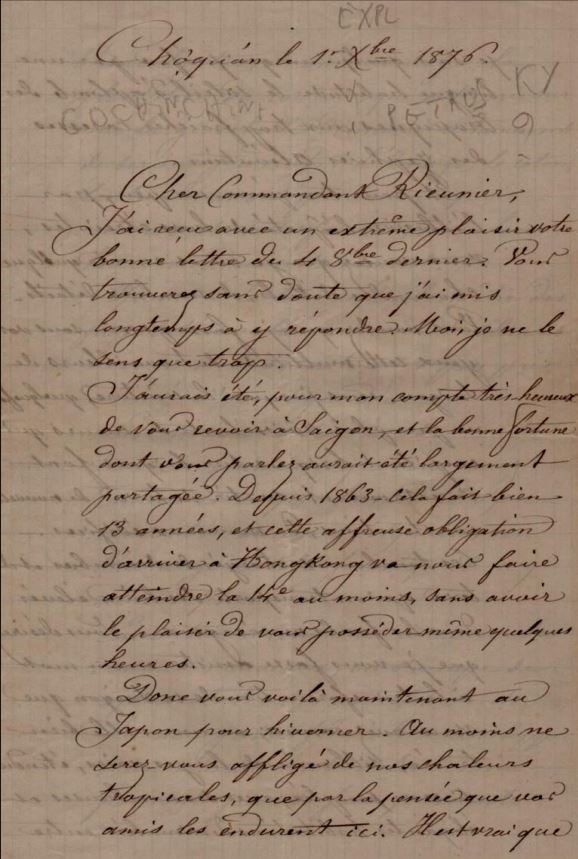 EXPL
Chợquán le 1er Xbre 1876.
KY
COCHINCHINE
PETRUS
6
Cher Commandant Rieunier,
J'ai reçu avec un extrême plaisir votre
bonne lettre du 4 8bre dernier. Vous
trouverez sans doute que j'ai mis
longtemps à y répondre. Moi, je ne le
sens que trop.
J'aurais été, pour mon compte très-heureux
de vous revoir à Saigon, et la bonne fortune
dont vous parlez aurait été largement
partagée. Depuis 1863 cela fait bien
13 années, et cette affreuse obligation
d'arriver à HongKong va nous faire
atteindre la 14e au moins, sans avoir
le plaisir de vous posséder même quelques
heures.
Donc vous voilà maintenant au
Japon pour hiverner. Au moins ne
serez-vous affligé de nos chaleurs
tropicales, que par la pensée que vos
amis les endurent ici. Il est vrai que